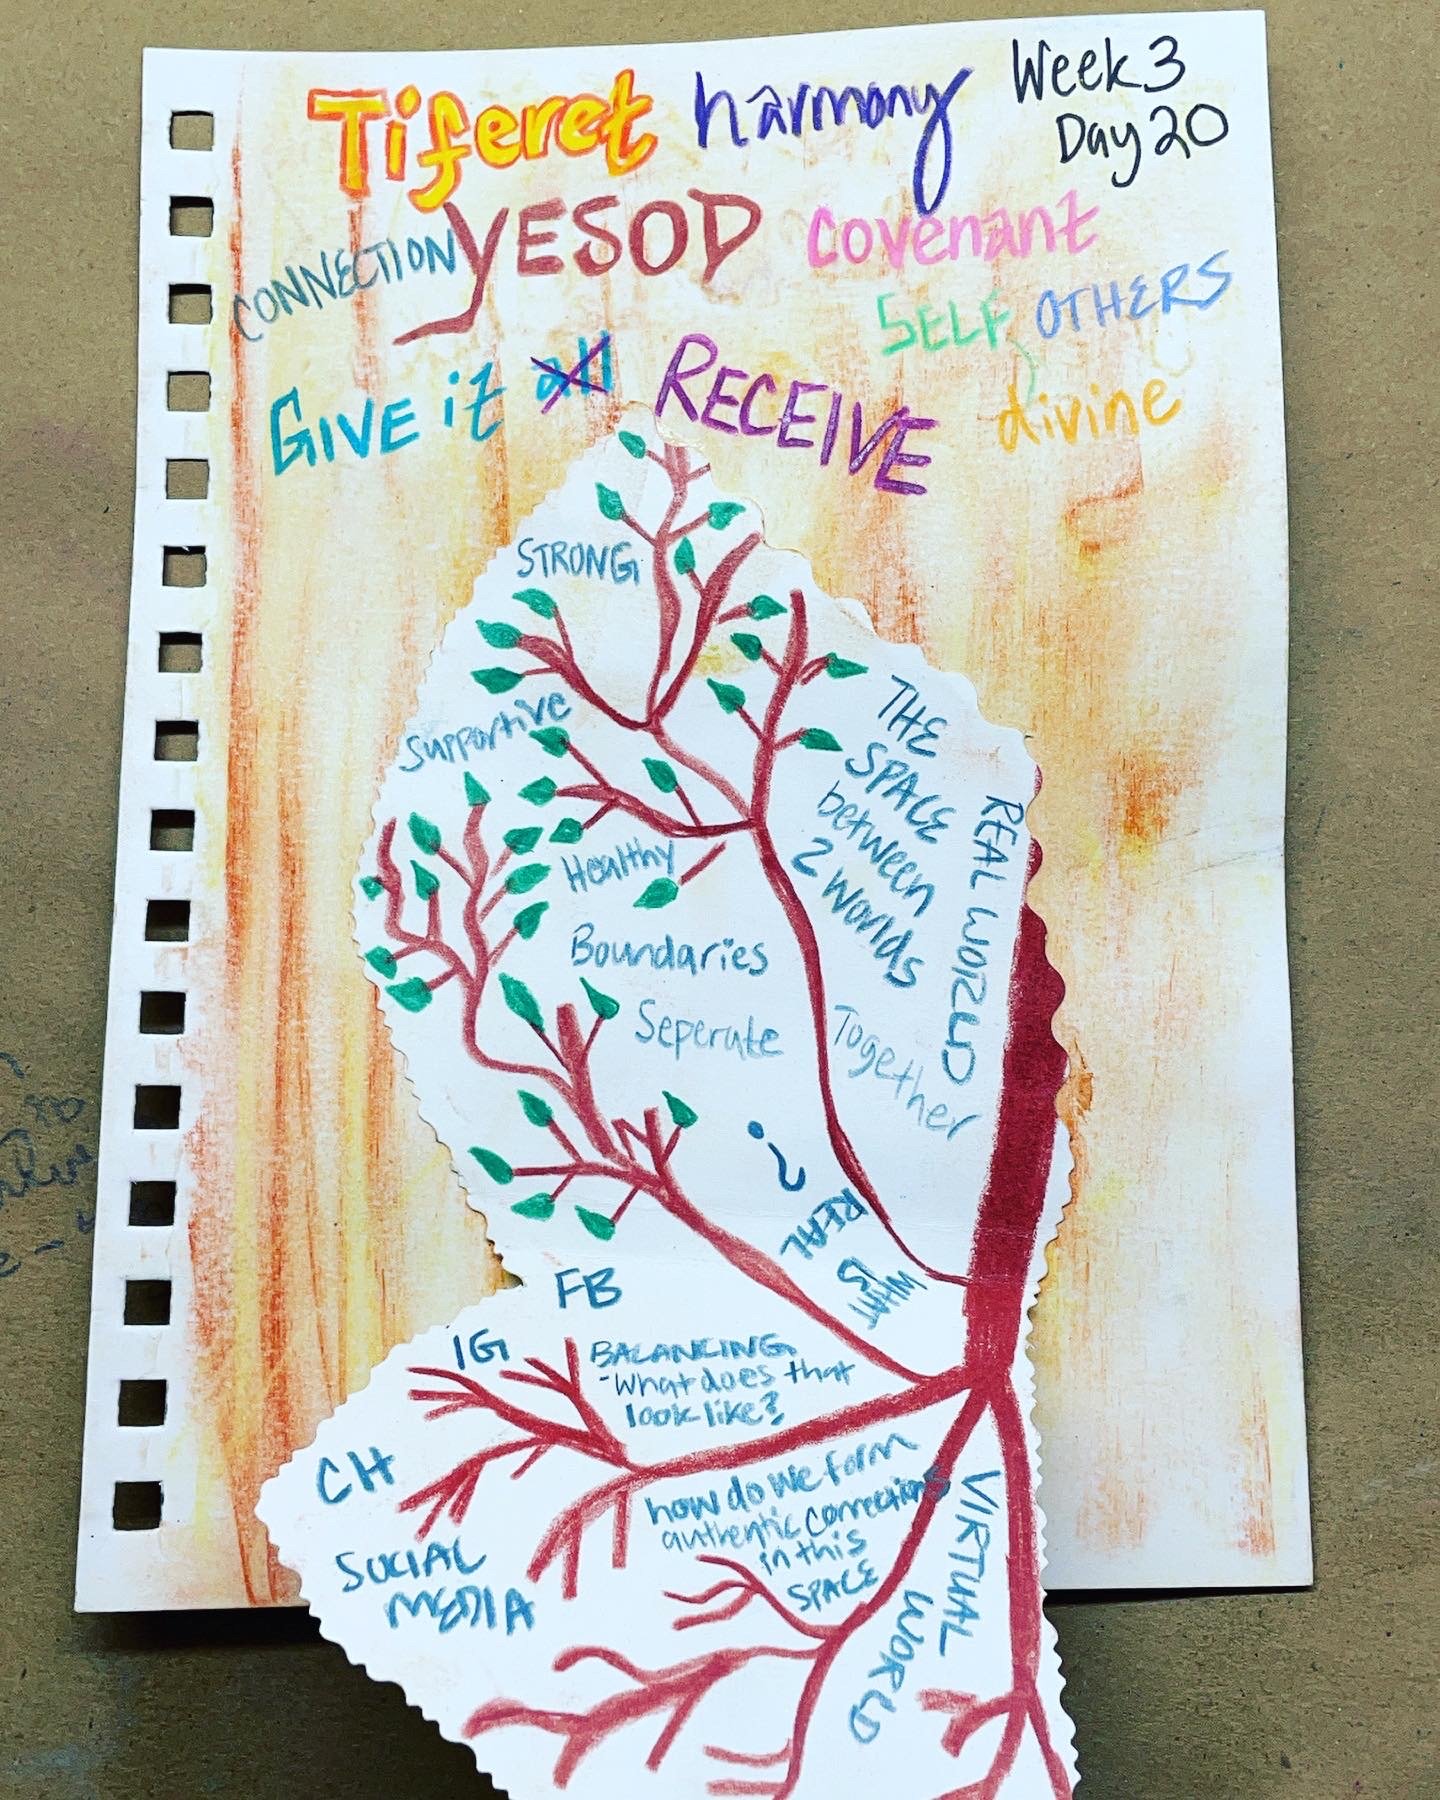 Tiferet harmony Week 3
Day 20
CONNECTION YESOD covenant
SELF OTHERS
GIVE it all RECEIVE divine
STRONG
Supportive
Healthy
Boundaries
Seperate
THE
SPACE
between
2 worlds
REAL WORLD
Together
WHAT
IS
REAL
?
FB
IG
CH
SOCIAL
MEDIA
BALANCING
-What does that
look like?
how do we form
authentic connections
in this
SPACE
VIRTUAL
WORLD